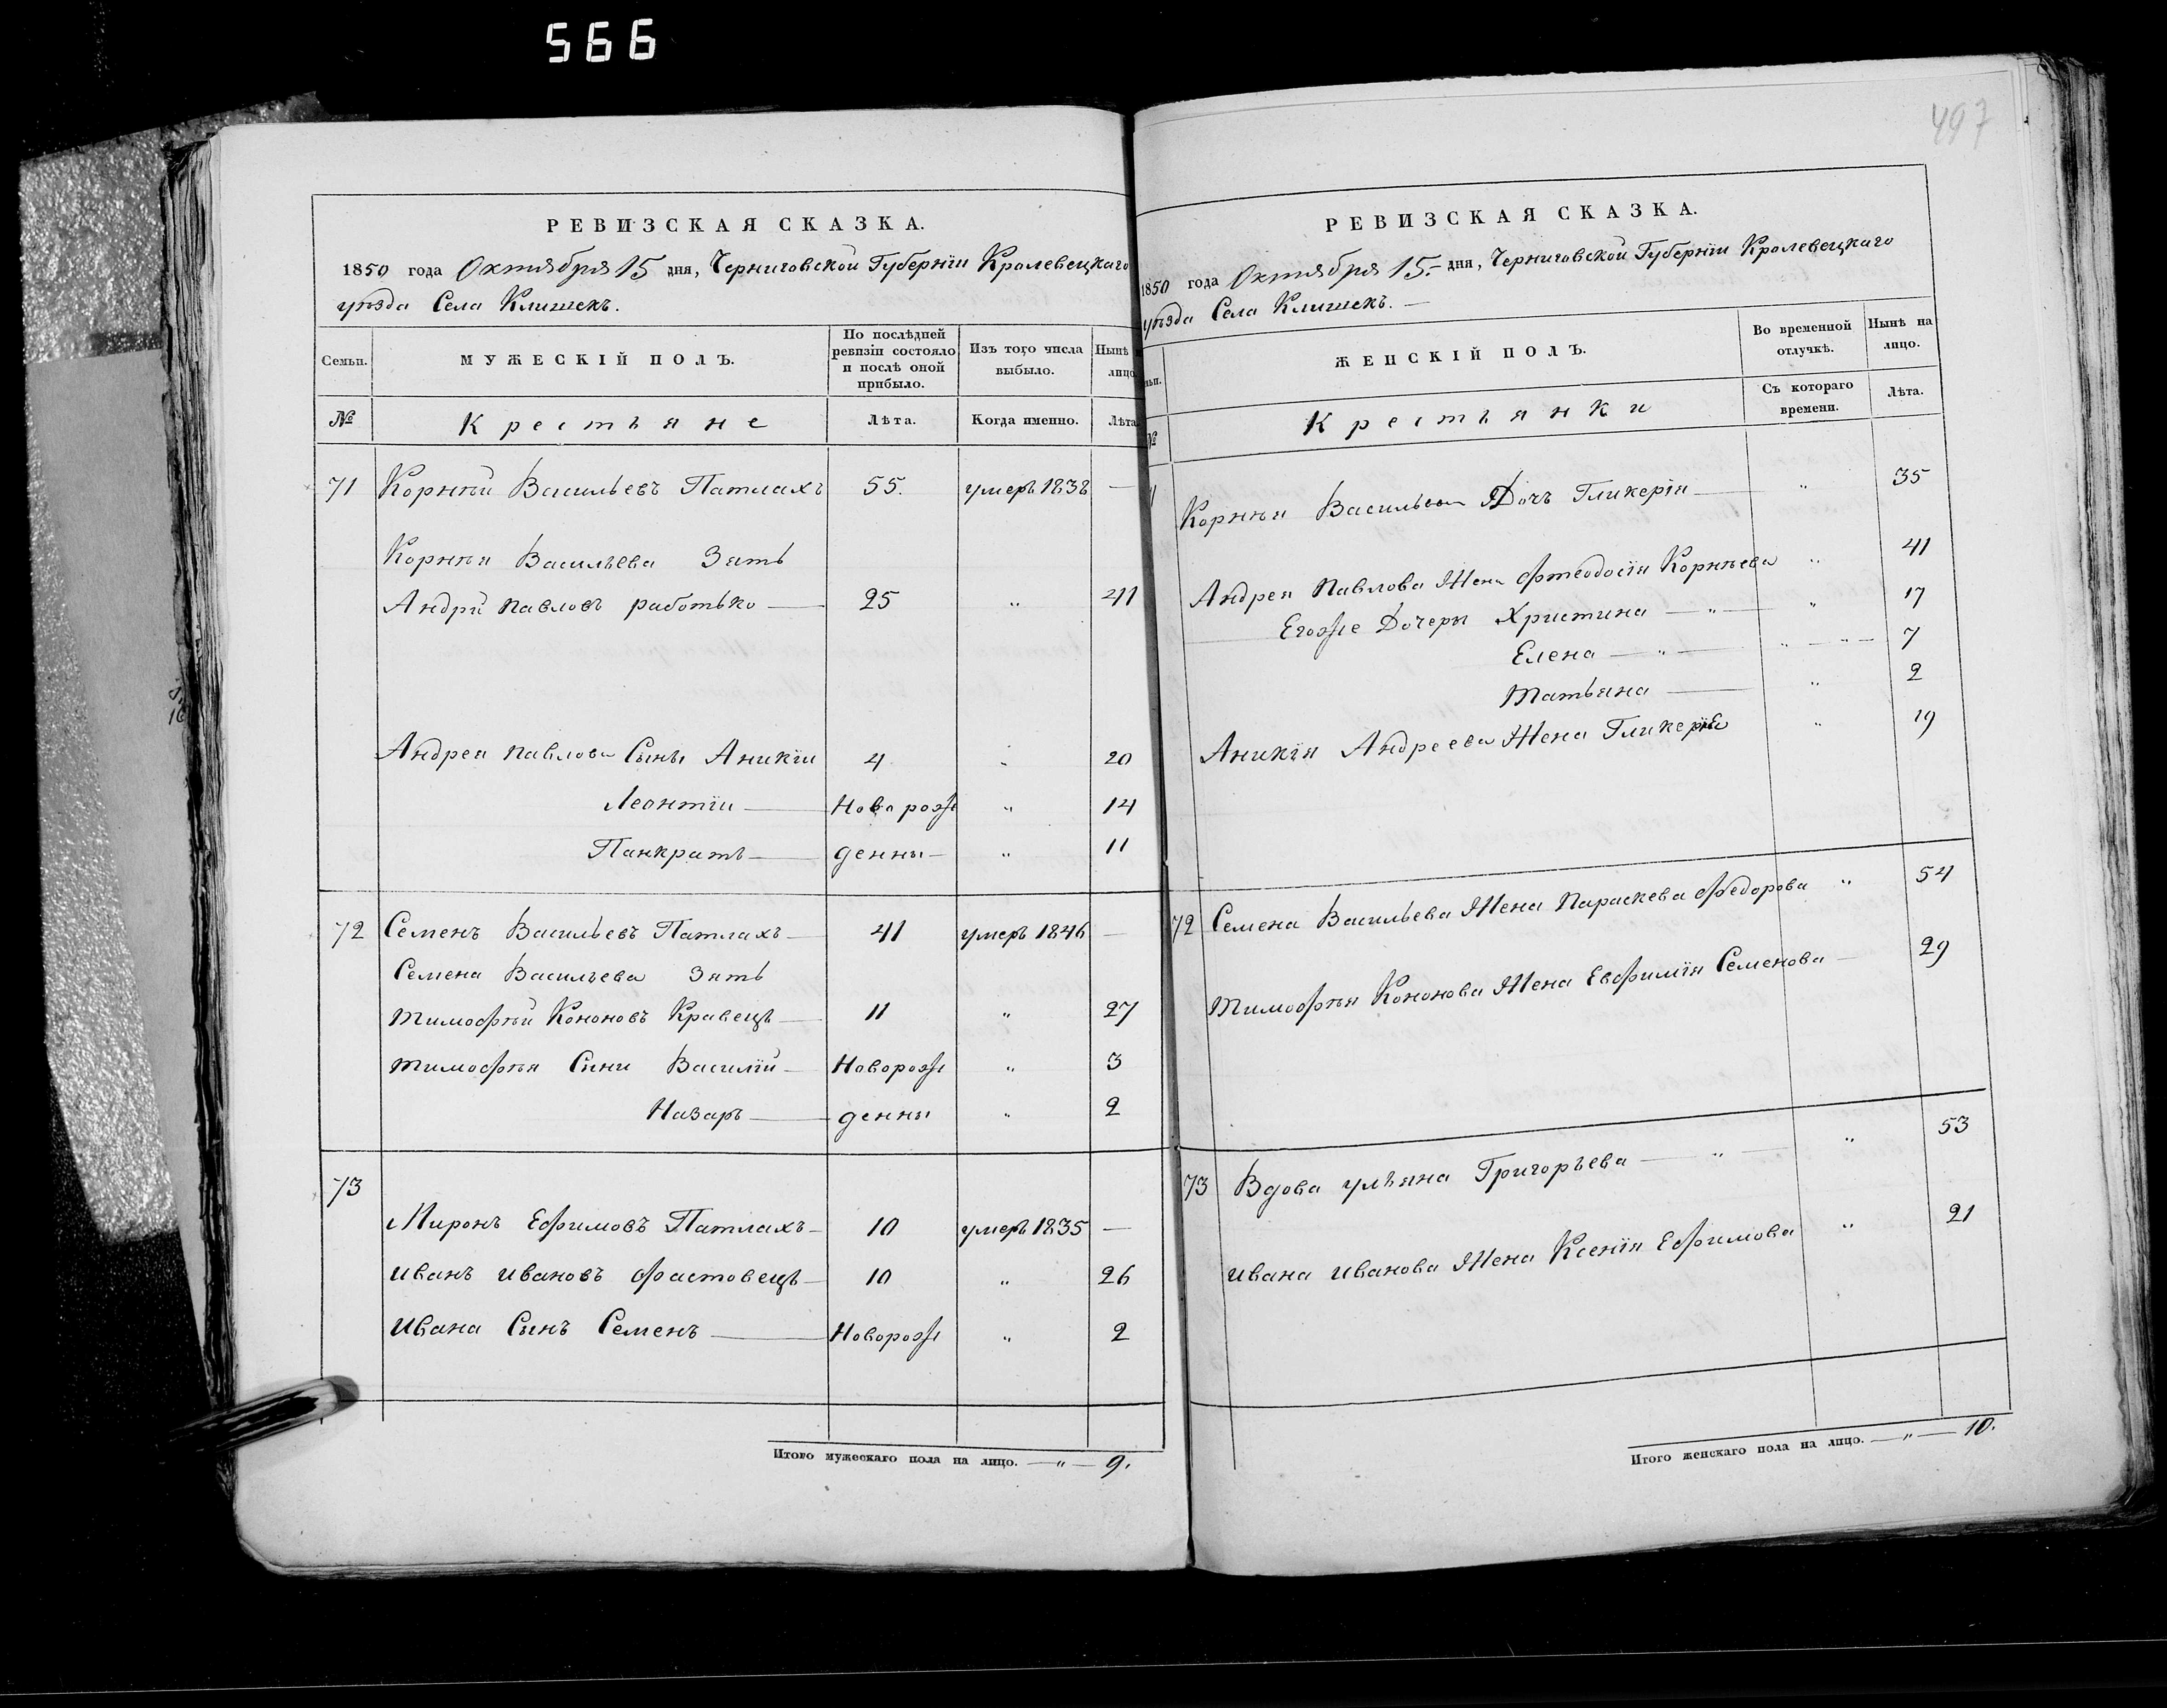 566
497
РЕВИЗСКАЯ СКАЗКА.
1850 года Октября 15 дня, Черниговской Губернiи Кролевецкаго
уѣзда Села Клишекъ.
Семьи.
МУЖЕСКIЙ ПОЛЪ.
По послѣдней ревизiи состояло и послѣ оной прибыло.
Изъ того числа выбыло.
Нынѣ лицо
№
Крестьяне
Лѣта.
Когда именно.
Лѣта
71 Корнѣй Васильевъ Патлахъ 55. умеръ 1838 —
Корнѣя Васильева Зять
Андрй Павловъ работько — 25 " 41
Андрея Павлова Сынъ Аникiи 4 " 20
Леонтiи — Новорож " 14
Панкратъ — денны — " 11
72 Семенъ Васильевъ Патлахъ — 41 умеръ 1846 —
Семена Васильева Зять
Тимофѣй Кононовъ Кравецъ — 11 " 27
Тимофѣя Сини Василiй — Новорож " 3
Назаръ — денны " 2
73
Миронъ Ефимовъ Патлахъ — 10 умеръ 1835 —
Иванъ Ивановъ Фастовецъ — 10 " 26
Ивана Сынъ Семенъ — Новорож " 2
Итого мужескаго пола на лицо. — " — 9.
РЕВИЗСКАЯ СКАЗКА.
1850 года Октября 15.– дня, Черниговской Губернiи Кролевецкаго
уѣзда Села Клишекъ. —
ьи.
ЖЕНСКIЙ ПОЛЪ.
Во временной отлучкѣ.
Нынѣ на лицо.
№
Крестьянки
Съ котораго времени.
Лѣта.
Корнѣя Васильева Дочъ Гликерiя — " 35
Андрея Павлова Жена Фтеодосiя Корнѣева " 41
Егоже Дочеры Христина — " — " 17
Елена — " — " — 7
Татьяна — " 2
Аникiя Андреева Жена Гликерiя " 19
72 Семена Васильева Жена Параскева Федорова " 54
Тимофѣя Кононова Жена Евфимiя Семенова — 29
73 Вдова Ульяна Григорьева — " — " 53
Ивана Иванова Жена Ксенiя Ефимова " 21
Итого женскаго пола на лицо. — " — 10.